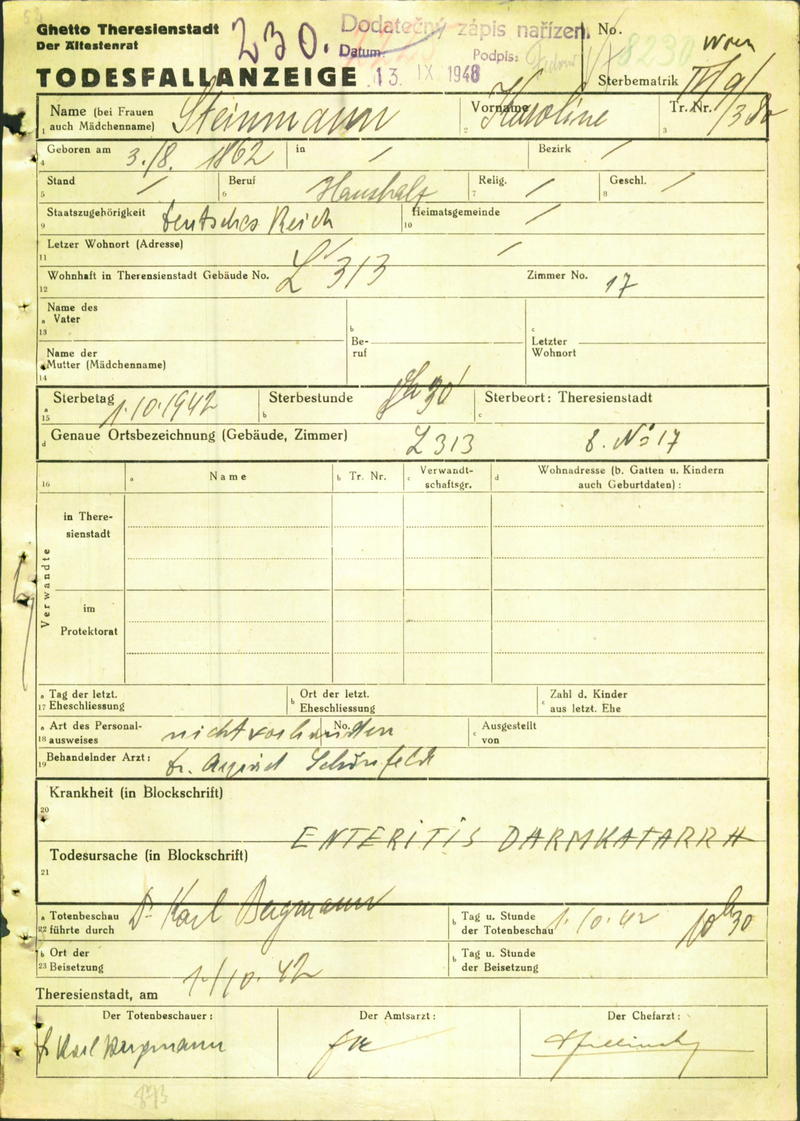 Ghetto Theresienstadt
Der Ältestenrat
230.
Dodatečný zápis nařízen.
Datum:
Podpis:
13 IX 1948
No.
8230
Wien
TODESFALLANZEIGE
Sterbematrik
IV/9/380
Name (bei Frauen auch Mädchenname) Steinmann
Vorname Karoline
Tr. Nr.
1 2 3
Geboren am 3./8. 1862 in / Bezirk /
4
Stand / Beruf Haushalt Relig. / Geschl. /
5 6 7 8
Staatszugehörigkeit deutsches Reich Heimatsgemeinde /
9 10
Letzer Wohnort (Adresse) /
11
Wohnhaft in Theresienstadt Gebäude No. L 313 Zimmer No. 17
12
Name des
a Vater
13
b Beruf
c Letzter Wohnort
Name der
Mutter (Mädchenname)
14
Sterbetag 1.10.1942 Sterbestunde h 30 Sterbeort: Theresienstadt
a 15 b c
d Genaue Ortsbezeichnung (Gebäude, Zimmer) L 313 No 17
16 a Name b Tr. Nr. c Verwandt-schaftsgr. d Wohnadresse (b. Gatten u. Kindern auch Geburtdaten) :
Verwandte
in There-
sienstadt
im
Protektorat
a Tag der letzt. b Ort der letzt. c Zahl d. Kinder
17 Eheschliessung Eheschliessung aus letzt. Ehe
a Art des Personal- nicht vorhanden b No. c Ausgestellt
18 ausweises von
19 Behandelnder Arzt : Dr. Schönfeld
Krankheit (in Blockschrift)
20
ENTERITIS DARMKATARRH
Todesursache (in Blockschrift)
21
a Totenbeschau Dr Karl Bergmann b Tag u. Stunde 1.10.42 10h30
22 führte durch der Totenbeschau
b Ort der b Tag u. Stunde
23 Beisetzung der Beisetzung
Theresienstadt, am 1./10. 42
Der Totenbeschauer : Der Amtsarzt : Der Chefarzt :
Dr Karl Bergmann